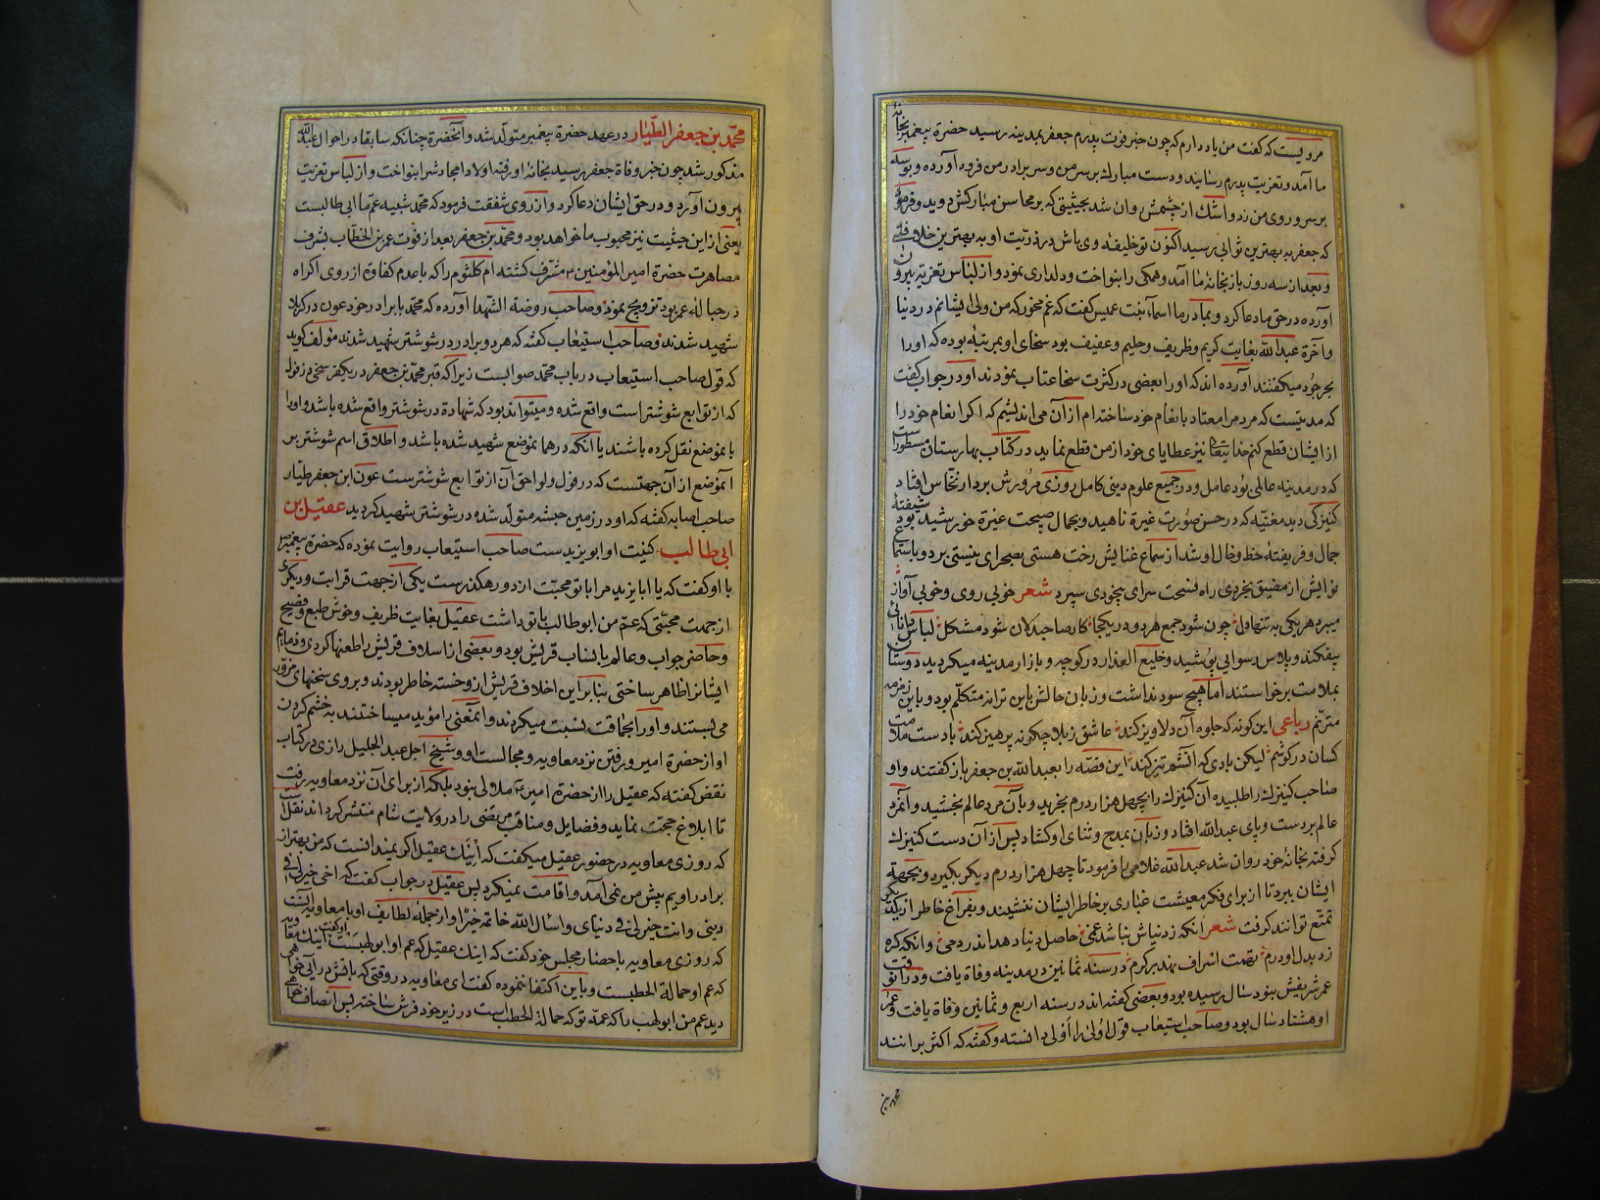 مرویست که گفت من یاد دارم که چون خبر فوت پدرم جعفر بمدینه رسید حضرة پیغمبر بخانهٔ
ما آمد و تعزیت پدرم رسانید و دست مبارک بر سر من و سر برادر من فرود آورده و بوسه
بر سر و روی من زد و اشک از چشمش روان شد بحیثیتی که بر محاسن مبارکش دوید و فرمود
که جعفر به بهترین ثوابی رسید اکنون تو خلیفهٔ وی باش در ذریت او به بهترین خلافتی
و بعد از سه روز باز بخانهٔ ما آمد و همکی را بنواخت و دلداری نمود و از لباس تعزیة بیرون
آورده در حق ما دعا کرد و بمادر ما اسماء بنت عمیس گفت که غم مخور که من ولی ایشانم در دنیا
و آخرة عبد الله بغایت کریم و ظریف و حلیم و عفیف بود سخای او بمرتبهٔ بوده که او را
بحر جود میکفتند آورده اند که او را بعضی در کثرت سخا عتاب نمودند او در جواب گفت
که مدتیست که مردم را معتاد بانعام خود ساخته ام از آن می اندیشم که اکر انعام خود را
از ایشان قطع کنم خدا یتعالی نیز عطایای خود از من قطع نماید در کتاب بهارستان مسطور است
که در مدینه عالمی بود عامل و در جمیع علوم دینی کامل روزی مرورش بر دار نخاس افتاد
کنیزکی دید مغنیه که در حسن صورت غیرة ناهید و بجمال صیحت عبرة خورشید بود شیفتهٔ
جمال و فریفتهٔ خط و خال او شد از سماع غنایش رخت هستی بصحرای نیستی برد و باستماع
نوایش از مضیق بخردی راه فسحت سرای بیخودی سپرد شعر خوبی روی و خوبی آواز
میبرد هر یکی به تنها دل چون شود جمع هر دو در یکجا کار صاحبدلان شود مشکل لباس دانایی
بیفکند و پلاس رسوایی پوشید و خلیع العذار در کوچه و بازار مدینه میکردید دوستان
بملامت برخواستند اما هیچ سود نداشت و زبان حالش باین ترانه متکلم بود و باین زمزمه
مترنم رباعی این کونه که جلوه آن دلاویز کند عاشق ز بلا چکونه پرهیز کند باد است ملامت
کسان در کوشم لیکن بادی که آتشم تیز کند این قصه را بعبد الله بن جعفر باز گفتند و او
صاحب کنیزک را طلبیده آن کنیزک را بچهل هزار درم بخرید و بآن مرد عالم بخشید و آنمرد
عالم بر دست و پای عبد الله افتاد و زبان بمدح و ثنای او کشاد پس از آن دست کنیزک
گرفته بخانهٔ خود روان شد عبد الله غلامی را فرمود تا چهل هزار درم دیکر بکیرد و بجهة
ایشان ببرد تا از برای فکر معیشت غباری بر خاطر ایشان ننشیند و بفراغ خاطر از یکدیکر
تمتع توانند کرفت شعر آنکه ز دنیاش نباشد غمی حاصل دنیا دهد اندر دمی وانکه کره
زد بدل او درم تهمت اسراف نهد بر کرم در سنه ثمانین در مدینه وفاة یافت و در آنوقت
عمر شریفش بنود سال رسیده بود و بعضی گفته اند در سنه اربع و ثمانین وفاة یافت و عمر
او هشتاد سال بود و صاحب استیعاب قول اولی را اولی دانسته و کفته که اکثر بر آنند
محمد بن
محمد بن جعفر الطیار در عهد حضرة پیغمبر متولد شد و آنحضرة چنانکه سابقا در احوال عبد الله
مذکور شد چون خبر وفاة جعفر رسید بخانهٔ او رفته اولاد امجادش را بنواخت و از لباس تعزیت
بیرون آورد و در حق ایشان دعا کرد و از روی شفقت فرمود که محمد شبیه عم ما ابی طالبست
یعنی از این حیثیت نیز محبوب ما خواهد بود و محمد بن جعفر بعد از فوت عمر بن الخطاب بشرف
مصاهرت حضرة امیر المؤمنین مشرف کشته ام کلثوم را که با عدم کفاة از روی اکراه
در حبالهٔ عمر بود تزویج نمود و صاحب روضة الشهدا آورده که محمد با برادر خود عون در کربلا
شهید شدند و صاحب استیعاب کفته که هر دو برادر در شوشتر شهید شدند مؤلف کوید
که قول صاحب استیعاب در باب محمد صوابست زیرا که قبر محمد بن جعفر در یکفرسخی دزفول
که از توابع شوشتر است واقع شده و میتواند بود که شهادة در شوشتر واقع شده باشد و او را
بانموضع نقل کرده باشند یا آنکه در همانموضع شهید شده باشد و اطلاق اسم شوشتر بر
آنموضع از آن جهتست که دزفول و لواحق آن از توابع شوشترست عون ابن جعفر طیار
صاحب اصابه کفته که او در زمین حبشه متولد شده در شوشتر شهید کردید عقیل بن
ابی طالب کنیت او ابو یزیدست صاحب استیعاب روایت نموده که حضرة پیغمبر
با او کفت که یا ابا یزید مرا با تو محبت از دو رهکذرست یکی از جهت قرابت و دیکری
از جهت محبتی که عم من ابو طالب با تو داشت عقیل بغایت ظریف و خوش طبع و فصیح
و حاضر جواب و عالم بانساب قریش بود و بعضی از اسلاف قریش را طعنها کردی و ذمایم
ایشانرا ظاهر ساختی بنابراین اخلاف قریش از وخسته خاطر بودند و بر وی سخنهای مزور
می بستند و او را بحماقت نسبت میکردند و آنمعنی را مؤید میساختند به خشم کردن
او از حضرة امیر و رفتن نزد معاویه و مجالست او و شیخ اجل عبد الجلیل رازی در کتاب
نقض کفته که عقیل را از حضرة امیر ملالی نبود بلکه از برای آن نزد معاویه رفت
تا ابلاغ حجت نماید و فضایل و مناقب مرتضی را در ولایت شام منتشر کرداند نقلست
که روزی معاویه در حضور عقیل میکفت که اینک عقیل اکر نمیدانست که من بهتر از
برادر اویم پیش من نمی آمد و اقامت نمیکرد پس عقیل در جواب کفت که اخی خیر لی فی
دینی و انت خیر لی فی دنیای و اسأل الله خاتمة خیر او از جملهٔ لطایف او با معاویه آنست
که روزی معاویه باحضار مجلس خود کفت که اینک عقیل که عم او ابو لهبست او کفت اینک معاویه
که عم او حمالة الحطبست و باین اکتفا ننموده کفت ای معاویه در وقتی که بآتش درآیی خواهی
دید عم من ابو لهب را که عمه تو که حمالة الحطب است در زیر خود فرش ساخته پس انصاف